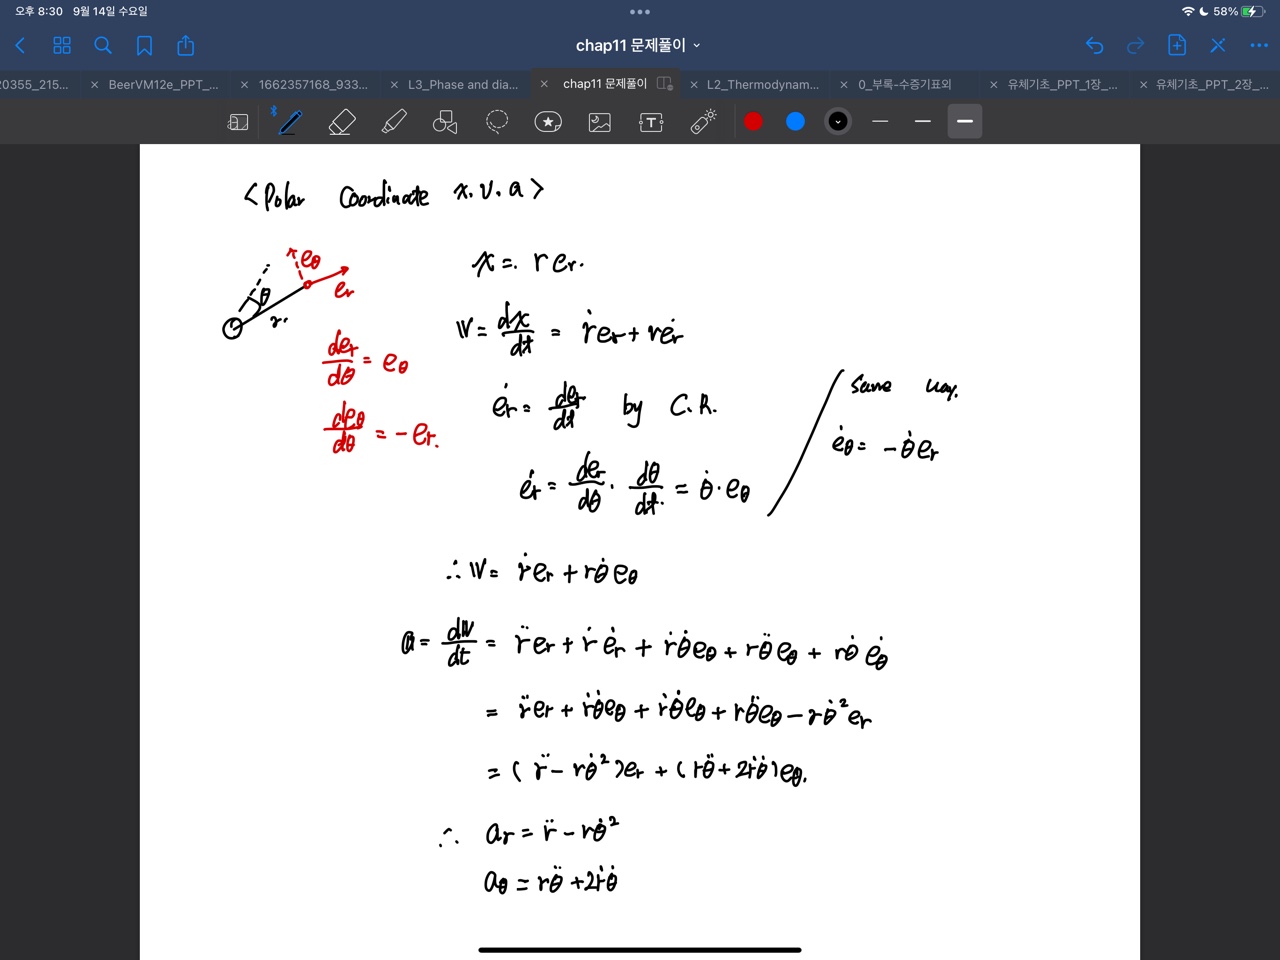 오후 8:30 9월 14일 수요일
58%
chap11 문제풀이
20355_215...
BeerVM12e_PPT_...
1662357168_933...
L3_Phase and dia...
chap11 문제풀이
L2_Thermodynam...
0_부록-수증기표외
유체기초_PPT_1장_...
유체기초_PPT_2장_...
T
<Polar Coordinate x.v.a>
eθ
er
θ
r.
x = r er.
der/dθ = eθ
deθ/dθ = -er.
v = dx/dt = ṙer + rėr
ėr = der/dt by C.R.
ėr = der/dθ · dθ/dt = θ̇·eθ
same way.
ėθ = -θ̇er
∴ v = ṙer + rθ̇eθ
a = dv/dt = r̈er + ṙėr + ṙθ̇eθ + rθ̈eθ + rθ̇ėθ
= r̈er + ṙθ̇eθ + ṙθ̇eθ + rθ̈eθ - rθ̇²er
= (r̈ - rθ̇²)er + (rθ̈ + 2ṙθ̇)eθ.
∴ ar = r̈ - rθ̇²
aθ = rθ̈ + 2ṙθ̇